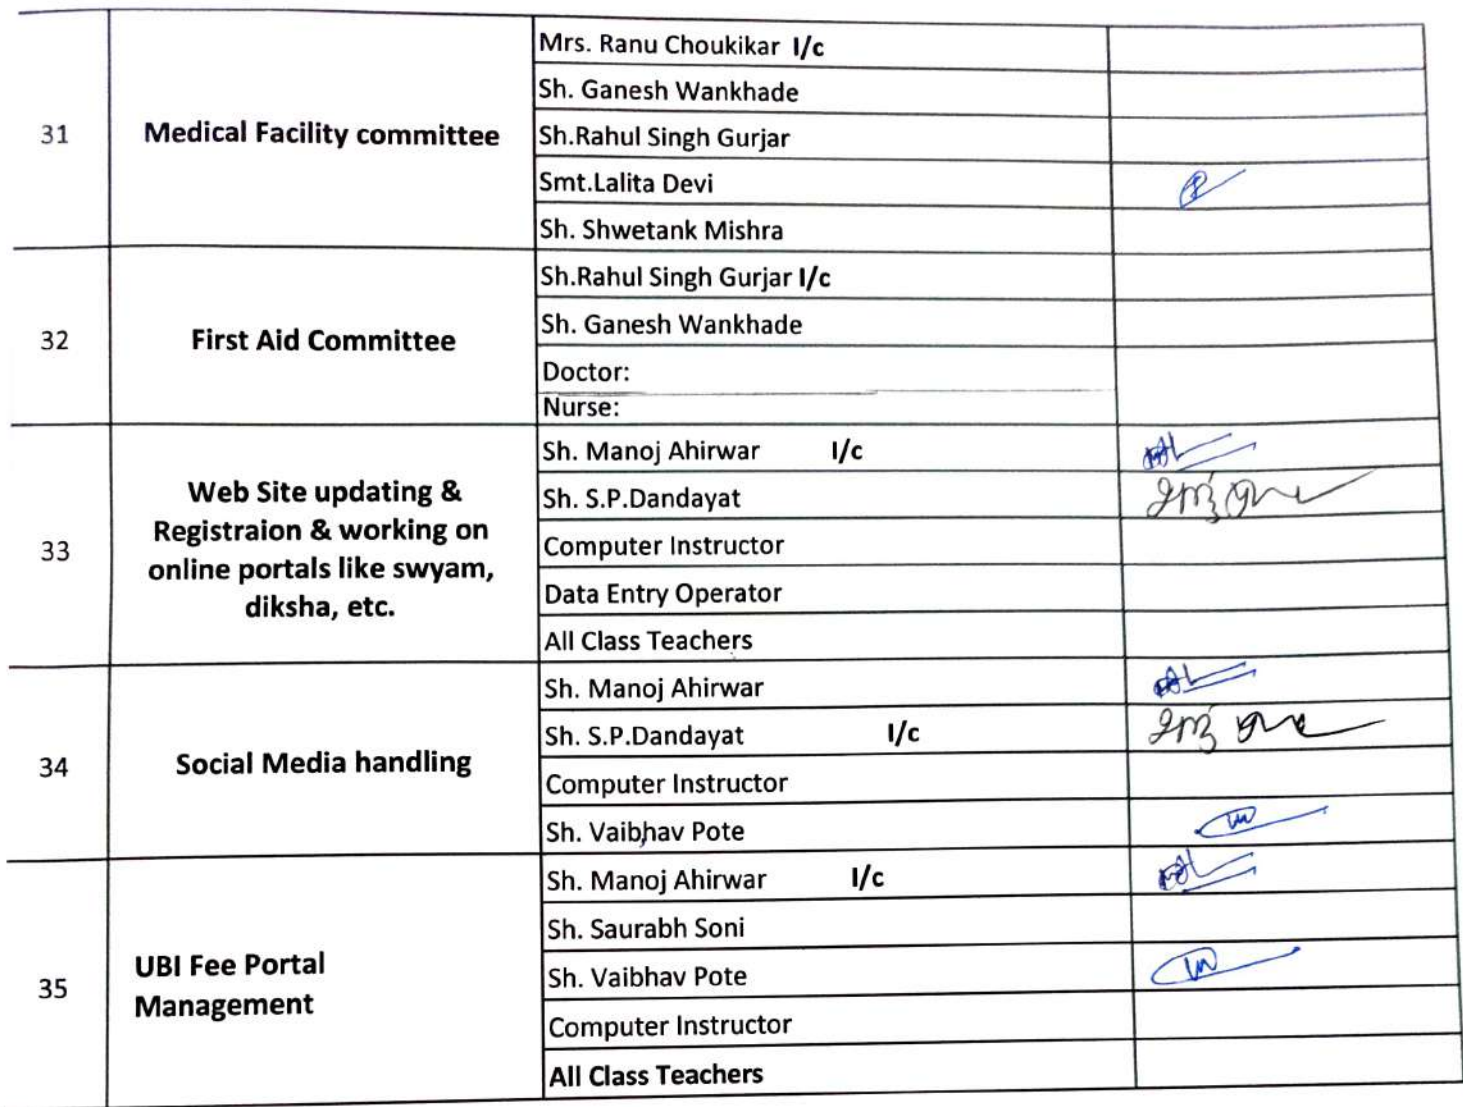 31
Medical Facility committee
Mrs. Ranu Choukikar I/c
Sh. Ganesh Wankhade
Sh.Rahul Singh Gurjar
Smt.Lalita Devi
Sh. Shwetank Mishra
32
First Aid Committee
Sh.Rahul Singh Gurjar I/c
Sh. Ganesh Wankhade
Doctor:
Nurse:
33
Web Site updating &
Registraion & working on
online portals like swyam,
diksha, etc.
Sh. Manoj Ahirwar I/c
Sh. S.P.Dandayat
Computer Instructor
Data Entry Operator
All Class Teachers
34
Social Media handling
Sh. Manoj Ahirwar
Sh. S.P.Dandayat I/c
Computer Instructor
Sh. Vaibhav Pote
35
UBI Fee Portal
Management
Sh. Manoj Ahirwar I/c
Sh. Saurabh Soni
Sh. Vaibhav Pote
Computer Instructor
All Class Teachers